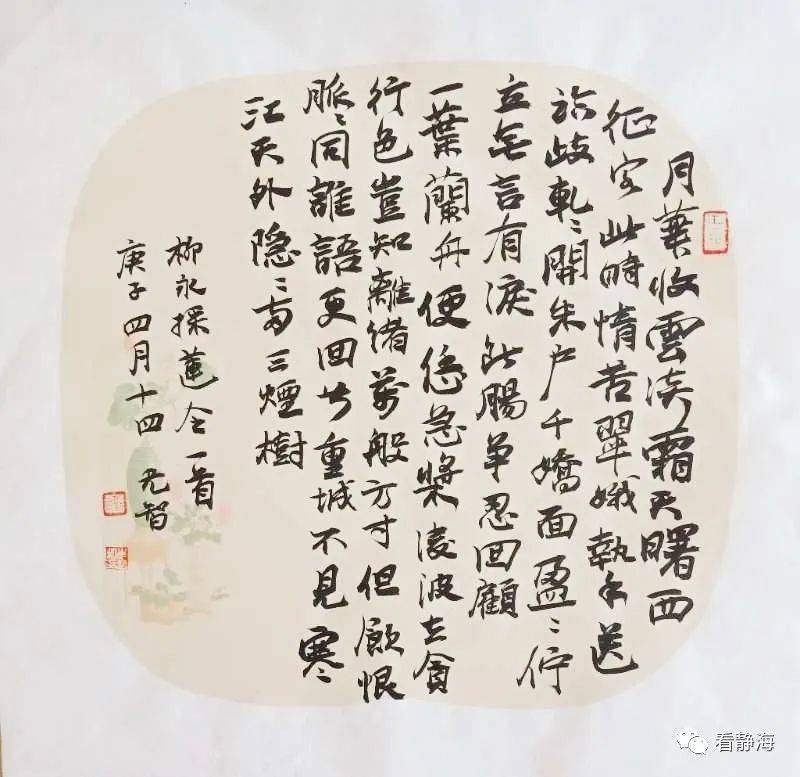 月華收雲淡霜天曙西
征客此時情苦翠娥執手送
臨歧軋〻開朱户千嬌面盈〻佇
立無言有淚斷腸爭忍回顧
一葉蘭舟便恁急槳凌波去貪
行色豈知離緒萬般方寸但飲恨
脈〻同誰語更回首重城不見寒
江天外隐〻兩三煙樹
柳永採蓮令一首
庚子四月十四 元智
看静海